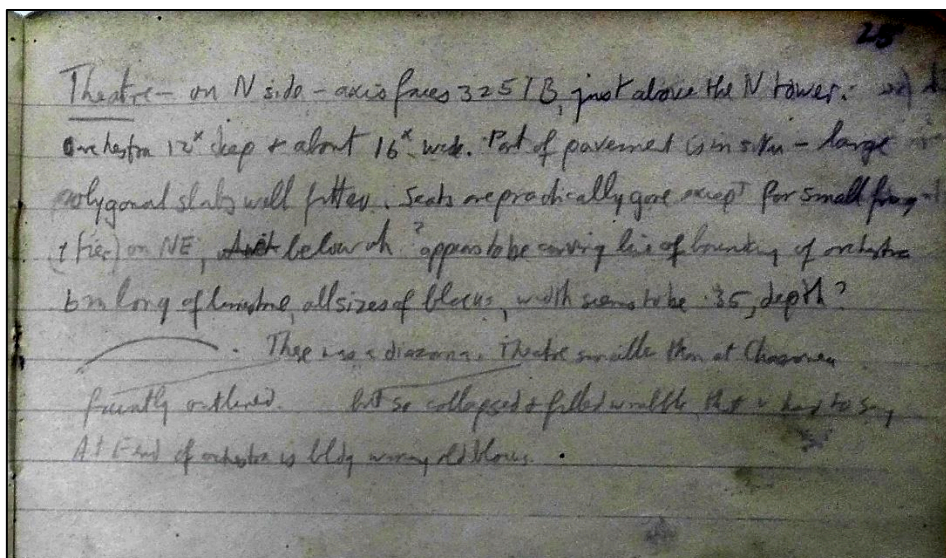 25
Theatre - on N side - axis faces 325 TB, just above the N tower.
Orchestra 12x deep + about 16x wide. Part of pavement is in situ - large
polygonal slabs well fitted. Seats are practically gone except for small frag
(1 tier) on NE, below wh ? appears to be curving line of bounding of orchestra
6m long of limestone, all sizes of blocks, width seems to be .35, depth?
There was a diazoma. Theatre smaller than at
faintly outlined. but so collapsed + filled w rubble that v hard to say
At E end of orchestra is bldg w many old blocks.